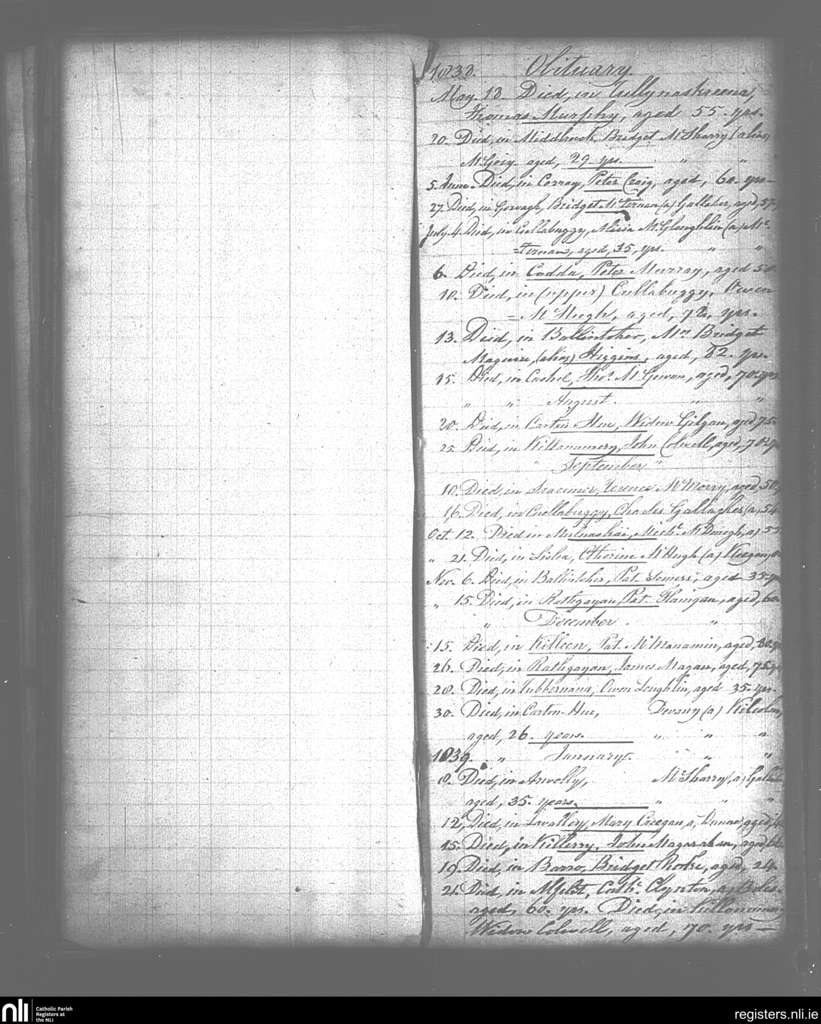 1838. Obituary.
May. 18. Died, in Tullynaskreena,
Thomas Murphy, aged 55. yrs.
20. Died, in Bridget McSharry (alias
McGoey. aged, 29. yrs. " "
5. June. Died, in Corray, Peter Craig, aged, 60. yrs
27. Died, in Gorvagh, Bridget McTernan (a) Gallaher, aged, 57.
July. 4. Died, in Cullabuggy, McGloughlin (a, Mc
=ternan, aged, 35, yrs. " "
6. Died, in Codda, Peter Murray, aged 50
10. Died, in (upper) Cullabuggy, Owen
=McHugh, aged, 72, yrs.
13. Died, in Ballintoher, Mrs Bridget
Maguire, (alias) Higgins, aged, 82. yrs.
15. Died, in Cashel, Thos. McGowan, aged, 70. yrs
" " August. " "
20. Died, in Carton Hue, Widow Gilgan, aged, 75.
25. Died, in Killanumery, John Colwell, aged, 70.
" September "
10. Died, in Terence McMorry, aged, 50,
16. Died, in Cullabuggy, Charles Gallagher (a, 54.
Oct. 12. Died in Michl. McDonogh, a)
" 21. Died, in Lisba, Catherine McHugh (a) Keegan,
Nov. 6. Died, in Ballintoher, Pat. Somers, aged 35.
" 15. Died, in Rathgayan, Pat. Flanigan, aged, 60.
" December. "
15. Died, in Killeen, Pat. McManamin, aged, 80.
26. Died, in Rathgayan, James Magan, aged, 75.
28. Died, in Tubbernana, Owen Loughlin, aged 35. yrs.
30. Died, in Carton-Hue, Devany (a)
aged, 26. years. " " "
1839. " January. " "
8. Died, in Arvelly, McSharry, a,
aged, 35. years. " " "
12, Died, in Lavalley, Mary Creegan, a, aged,
15. Died, in Killerry, John aged,
19. Died, in Barro, Bridget Rorke, aged, 24.
21. Died, in Cath. Cleynton, a,
aged, 60. yrs. Died, in
Widow Colwell, aged, 70. yrs
nli Catholic Parish
Registers at
the NLI
registers.nli.ie